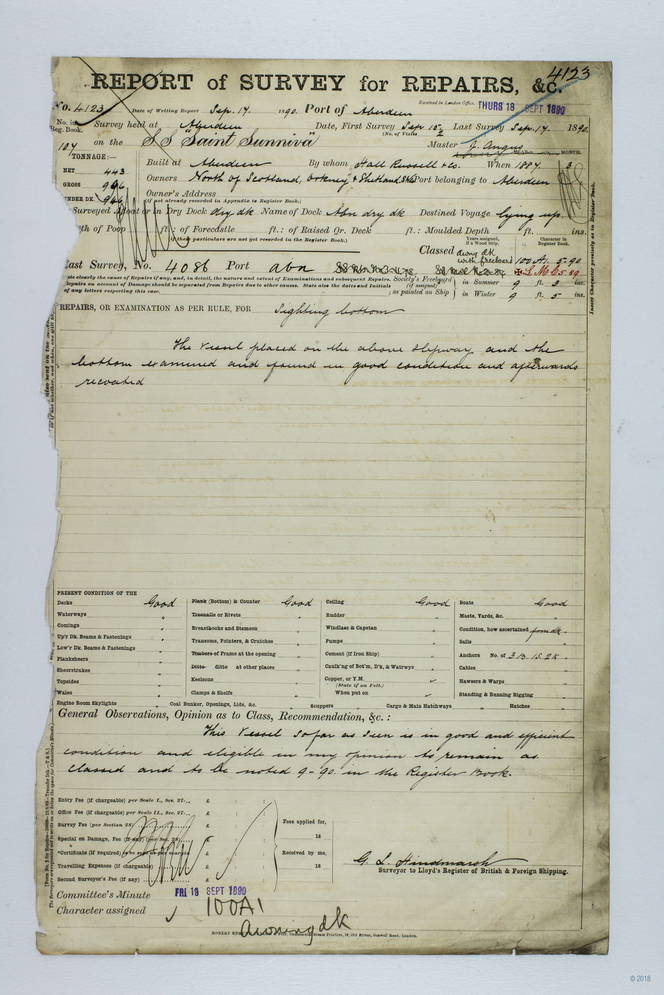 4123
REPORT of SURVEY for REPAIRS, &c.
No. 4123 Date of Writing Report Sep. 17. 1890. Port of Aberdeen
Received in London Office, THURS 18 SEPT 1890
No. in Reg. Book. Survey held at Aberdeen Date, First Survey Sep 15 Last Survey Sep. 17. 1890.
(No. of Visits 2
107 on the S.S "Saint Sunniva" Master J. Angus
TONNAGE:— MONTH.
Built at Aberdeen By whom Hall Russell & Co. When 1887. 3
NET 443
Owners North of Scotland, Orkney & Shetland Port belonging to Aberdeen
GROSS
Owner's Address
UNDER DK.
(if not already recorded in Appendix to Register Book.)
Surveyed Afloat or in Dry Dock dry dk Name of Dock Abn dry dk Destined Voyage lying up
of Poop ft.: of Forecastle ft.: of Raised Qr. Deck ft.: Moulded Depth ft. ins.
(If these particulars are not yet recorded in the Register Book.)
Years assigned, if a Wood Ship. Character in Register Book.
Classed awng dk with freeboard 100A1. 5.90
Last Survey, No. 4086 Port abn L.M.C. 5.89
Society's Freeboard (if assigned) as painted on Ship in Summer 9 ft. 3 ins.
in Winter 9 ft. 5 ins.
Insert Character precisely as in Register Book.
REPAIRS, OR EXAMINATION AS PER RULE, FOR Sighting bottom
The Vessel placed on the above slipway and the
bottom examined and found in good condition and afterwards
recoated
PRESENT CONDITION OF THE
Decks Good Plank (Bottom) & Counter Good Ceiling Good Boats Good
Waterways " Treenails or Rivets " Rudder " Masts, Yards, &c. "
Comings " Breasthooks and Stemson " Windlass & Capstan " Condition, how ascertained from dk.
Up'r Dk. Beams & Fastenings " Transoms, Pointers, & Crutches " Pumps " Sails "
Low'r Dk. Beams & Fastenings " Timbers of Frame at the opening " Cement (if Iron Ship) " Anchors No. of 3 B. 1 S. 2 K.
Planksheers " Ditto ditto at other places " Caulk'ng of Bot'm, D'k, & Watrwys " Cables "
Sheerstrakes "
Topsides " Keelsons " Copper, or Y.M. Hawsers & Warps "
(State if on Felt.)
Wales " Clamps & Shelfs " When put on Standing & Running Rigging "
Engine Room Skylights " Coal Bunker, Openings, Lids, &c. " Scuppers " Cargo & Main Hatchways " Hatches "
General Observations, Opinion as to Class, Recommendation, &c. :
This Vessel so far as seen is in good and efficient
condition and eligible in my opinion to remain as
classed and to be noted 9-90. in the Register Book.
Entry Fee (if chargeable) per Scale I., Sec. 27... £
Office Fee (if chargeable) per Scale II., Sec. 27... £
Survey Fee (per Section 28) £
Fees applied for,
18
Special on Damage, Fee (if any) (per Sec. 28) £
*Certificate (if required) to be £
Received by me,
Travelling Expenses (if chargeable) £
18
Second Surveyor's Fee (if any) £
G. L. Hindmarsh
Surveyor to Lloyd's Register of British & Foreign Shipping.
Committee's Minute FRI. 19 SEPT 1890
Character assigned 100A1
Awning dk
© 2018